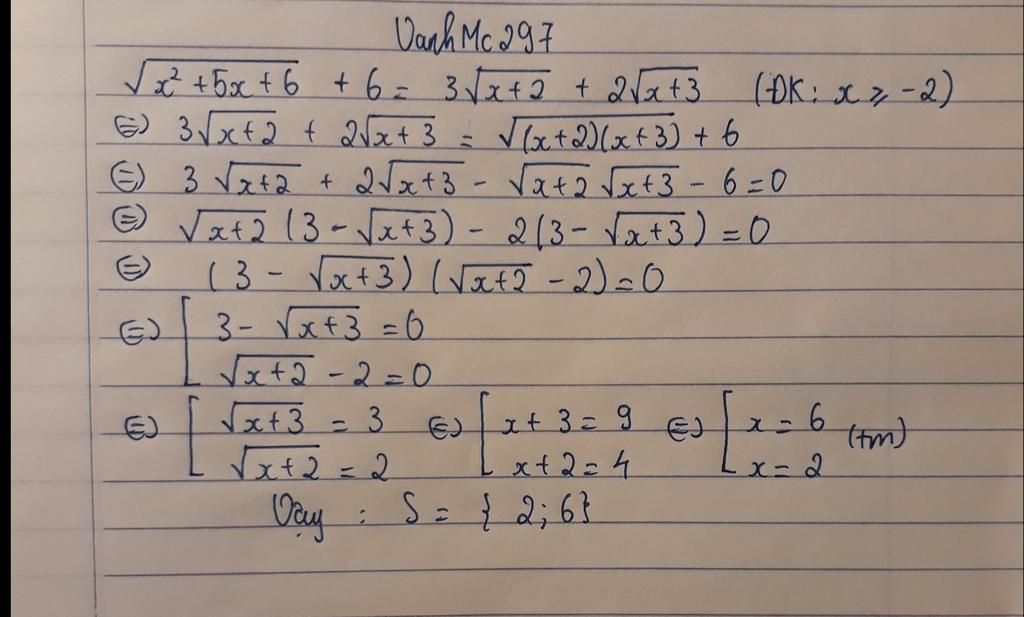 VanhMc297
√(x² + 5x + 6) + 6 = 3√(x+2) + 2√(x+3) (ĐK: x ≥ -2)
⇔ 3√(x+2) + 2√(x+3) = √((x+2)(x+3)) + 6
⇔ 3√(x+2) + 2√(x+3) - √(x+2)√(x+3) - 6 = 0
⇔ √(x+2) (3 - √(x+3)) - 2(3 - √(x+3)) = 0
⇔ (3 - √(x+3)) (√(x+2) - 2) = 0
⇔ [ 3 - √(x+3) = 0
√(x+2) - 2 = 0
⇔ [ √(x+3) = 3 ⇔ [ x + 3 = 9 ⇔ [ x = 6 (tm)
√(x+2) = 2 x + 2 = 4 x = 2
Vậy : S = { 2; 6}